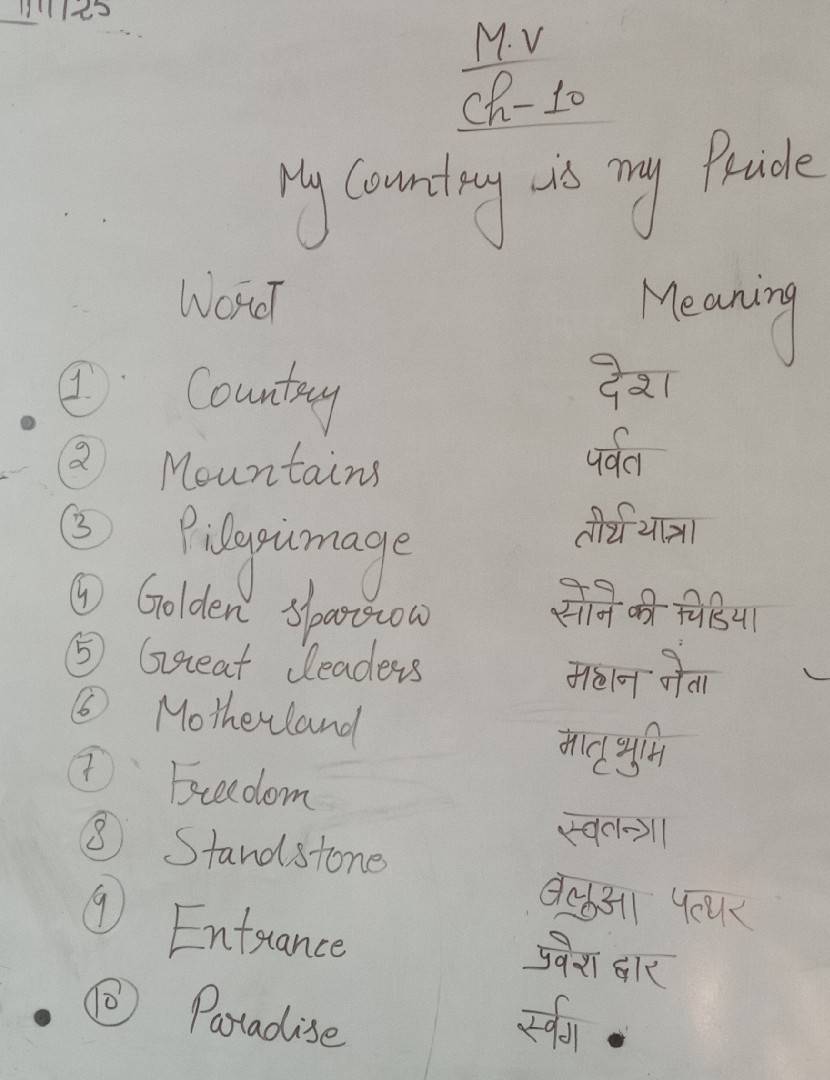 M.V
Ch-10
My Country is my Pride
Word Meaning
1 Country देश
2 Mountains पर्वत
3 Pilgrimage तीर्थ यात्रा
4 Golden sparrow सोने की चिडिया
5 Great leaders महान नेता
6 Motherland मातृभुमि
7 Freedom स्वतन्त्रा
8 Standstone बलुआ पत्थर
9 Entrance प्रवेश द्वार
10 Paradise र्स्वग